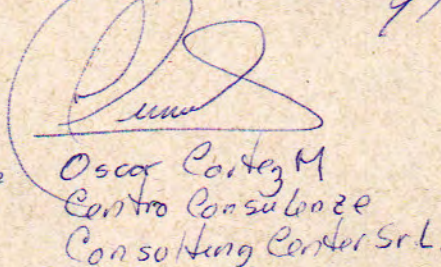 Oscar Cortez M
Centro Consulenze
Consulting Center Srl